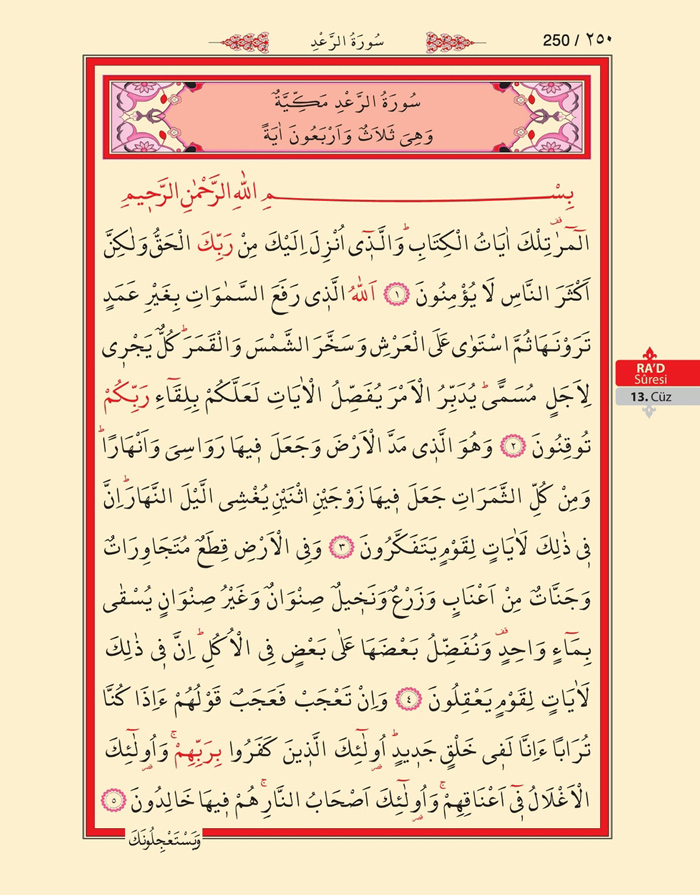 سُورَةُ الرَّعْدِ
250 / ٢٥٠
سُورَةُ الرَّعْدِ مَكِّيَّةٌ
وَهِىَ ثَلَاثٌ وَاَرْبَعُونَ اٰيَةً
بِسْمِ اللّٰهِ الرَّحْمٰنِ الرَّحٖيمِ
الٓمٓرٰ۠ تِلْكَ اٰيَاتُ الْكِتَابِؕ وَالَّذٖٓى اُنْزِلَ اِلَيْكَ مِنْ رَبِّكَ الْحَقُّ وَلٰكِنَّ
اَكْثَرَ النَّاسِ لَا يُؤْمِنُونَ ﴿١﴾ اَللّٰهُ الَّذٖى رَفَعَ السَّمٰوَاتِ بِغَيْرِ عَمَدٍ
تَرَوْنَهَا ثُمَّ اسْتَوٰى عَلَى الْعَرْشِ وَسَخَّرَ الشَّمْسَ وَالْقَمَرَؕ كُلٌّ يَجْرٖى
لِاَجَلٍ مُسَمًّىؕ يُدَبِّرُ الْاَمْرَ يُفَصِّلُ الْاٰيَاتِ لَعَلَّكُمْ بِلِقَٓاءِ رَبِّكُمْ
تُوقِنُونَ ﴿٢﴾ وَهُوَ الَّذٖى مَدَّ الْاَرْضَ وَجَعَلَ فٖيهَا رَوَاسِىَ وَاَنْهَارًاؕ
وَمِنْ كُلِّ الثَّمَرَاتِ جَعَلَ فٖيهَا زَوْجَيْنِ اثْنَيْنِ يُغْشِى الَّيْلَ النَّهَارَؕ اِنَّ
فٖى ذٰلِكَ لَاٰيَاتٍ لِقَوْمٍ يَتَفَكَّرُونَ ﴿٣﴾ وَفِى الْاَرْضِ قِطَعٌ مُتَجَاوِرَاتٌ
وَجَنَّاتٌ مِنْ اَعْنَابٍ وَزَرْعٌ وَنَخٖيلٌ صِنْوَانٌ وَغَيْرُ صِنْوَانٍ يُسْقٰى
بِمَٓاءٍ وَاحِدٍ۠ وَنُفَضِّلُ بَعْضَهَا عَلٰى بَعْضٍ فِى الْاُكُلِؕ اِنَّ فٖى ذٰلِكَ
لَاٰيَاتٍ لِقَوْمٍ يَعْقِلُونَ ﴿٤﴾ وَاِنْ تَعْجَبْ فَعَجَبٌ قَوْلُهُمْ ءَاِذَا كُنَّا
تُرَابًا ءَاِنَّا لَفٖى خَلْقٍ جَدٖيدٍؕ اُو۬لٰٓئِكَ الَّذٖينَ كَفَرُوا بِرَبِّهِمْۚ وَاُو۬لٰٓئِكَ
الْاَغْلَالُ فٖٓى اَعْنَاقِهِمْۚ وَاُو۬لٰٓئِكَ اَصْحَابُ النَّارِۚ هُمْ فٖيهَا خَالِدُونَ ﴿٥﴾
وَيَسْتَعْجِلُونَكَ
RA'D
Sûresi
13. Cüz